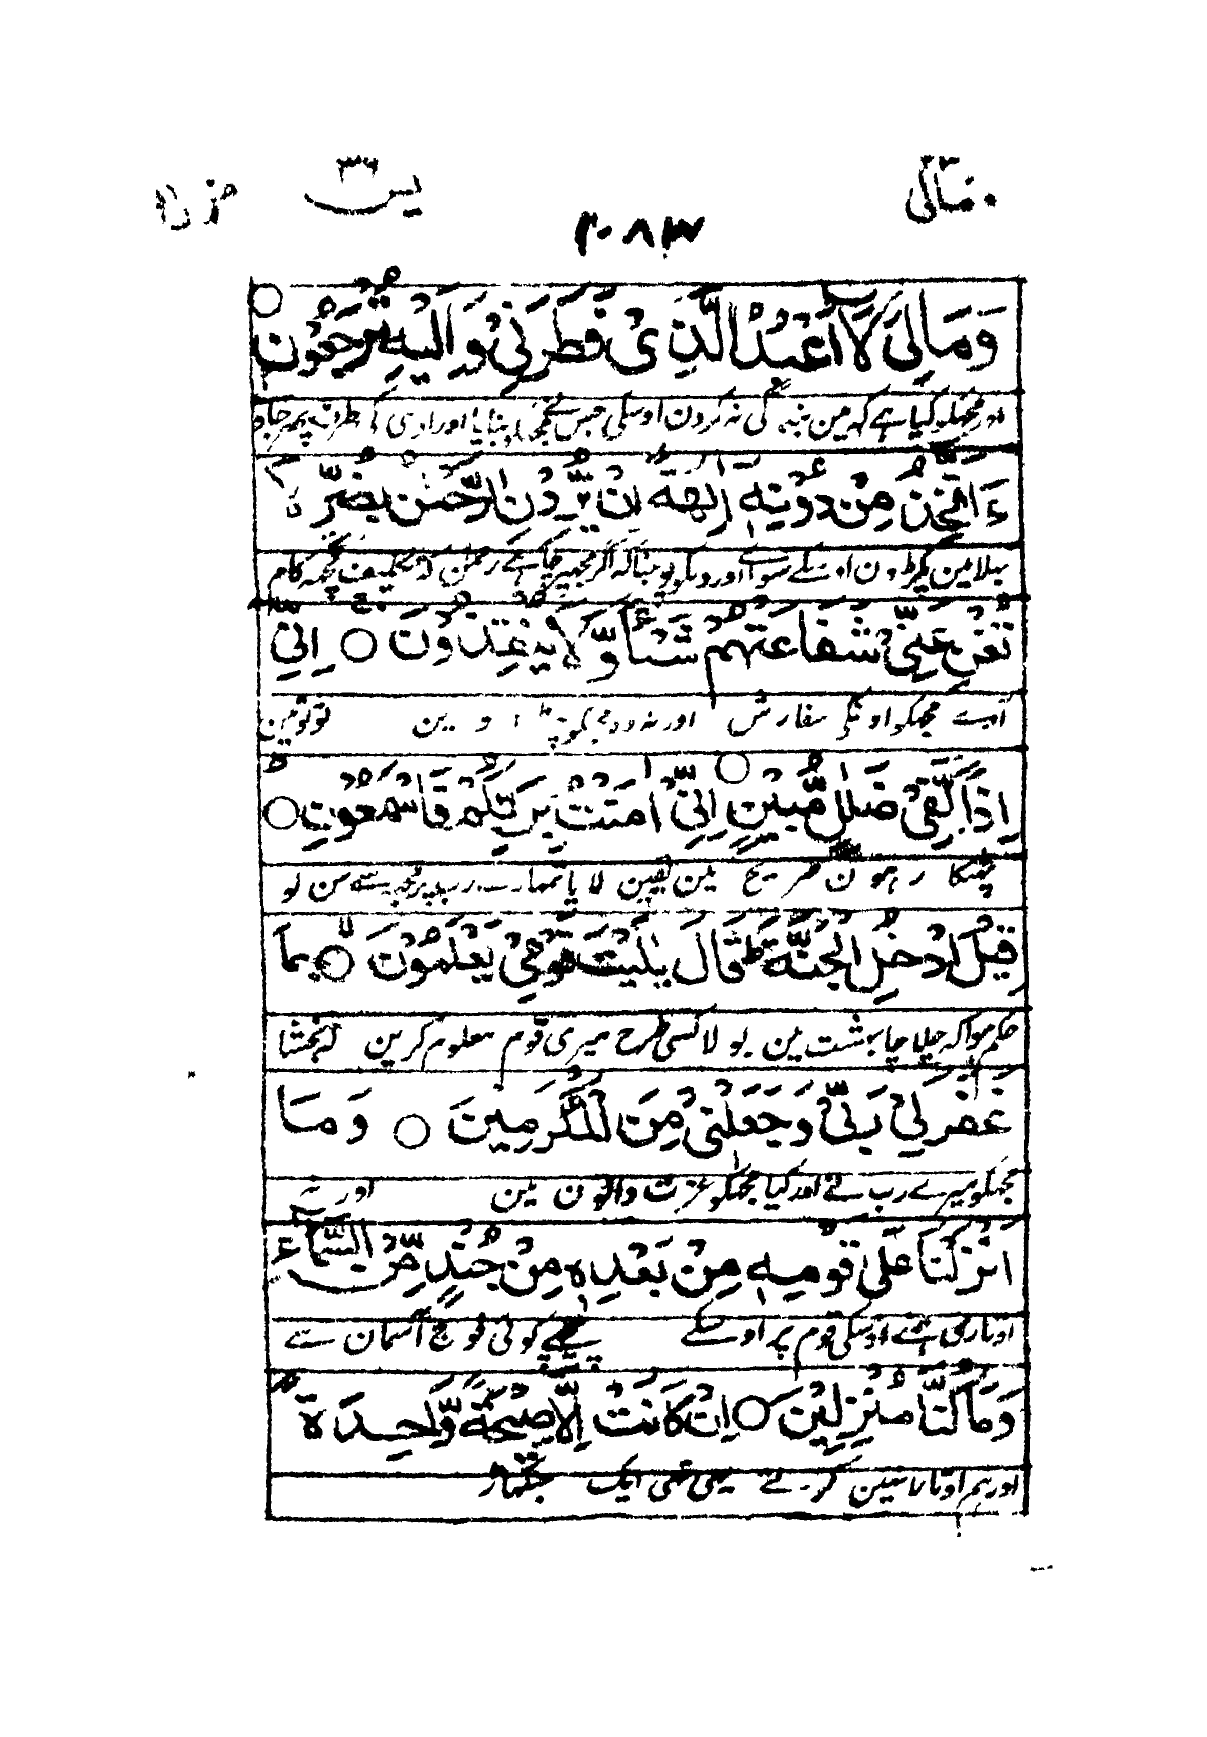 ومالی ۲۳ یٰس ۳۶
۲۰۸۳
وَمَالِیَ لَاۤ اَعْبُدُ الَّذِیْ فَطَرَنِیْ وَاِلَیْهِ تُرْجَعُوْنَ ○
اور مجھکو کیا ہے کہ مین بندگی نہ کرون اوسکی جس نے مجھکو بنایا اور اوسی کی طرف پھر جاؤ
ءَاَتَّخِذُ مِنْ دُوْنِهٖۤ اٰلِهَةً اِنْ یُّرِدْنِ الرَّحْمٰنُ بِضُرٍّ لَّا
بھلا مین پکڑون اوسکے سواے اورونکو پوجنا کہ اگر مجھپر چاہے رحمٰن تکلیف کچھ کام
تُغْنِ عَنِّیْ شَفَاعَتُهُمْ شَیْـًٔا وَّلَا یُنْقِذُوْنِ ○ اِنِّیْۤ
آوے مجھکو اونکی سفارش اور نہ وہ مجکو تو تو مین
اِذًا لَّفِیْ ضَلٰلٍ مُّبِیْنٍ ○ اِنِّیْۤ اٰمَنْتُ بِرَبِّكُمْ فَاسْمَعُوْنِ ○
بھٹکا رہون صریح مین یقین لایا تمہارے رب پر مجھسے سن لو
قِیْلَ ادْخُلِ الْجَنَّةَ ؕ قَالَ یٰلَیْتَ قَوْمِیْ یَعْلَمُوْنَ ○ بِمَا
حکم ہوا کہ چلا جا بہشت مین بولا کسی طرح میری قوم معلوم کرین کہ بخشا
غَفَرَ لِیْ رَبِّیْ وَجَعَلَنِیْ مِنَ الْمُكْرَمِیْنَ ○ وَمَاۤ
مجھکو میرے رب نے اور کیا مجھکو عزت والون مین اور نہ
اَنْزَلْنَا عَلٰی قَوْمِهٖ مِنْۢ بَعْدِهٖ مِنْ جُنْدٍ مِّنَ السَّمَآءِ
اوتاری ہمنے اوسکی قوم پر اوسکے پیچھے کوئی فوج آسمان سے
وَمَا كُنَّا مُنْزِلِیْنَ ○ اِنْ كَانَتْ اِلَّا صَیْحَةً وَّاحِدَةً
اور ہم اوتارا نہین کرتے یہی تھی ایک چنگھاڑ